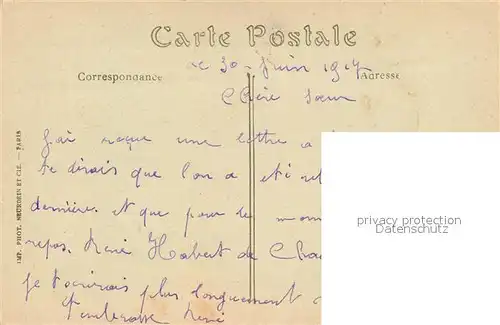 Carte Postale
Correspondance
Adresse
Le 30 Juin 1917
Chère Sœur
J'ai reçue une lettre a
te dirais que l'on a eté rel
dernière. et que pour le mom
repos. René Habert de Cha
je t'ecrirais plus longuement
t'embrasse René
IMP. PHOT. NEURDEIN ET CIE. — PARIS
privacy protection
Datenschutz